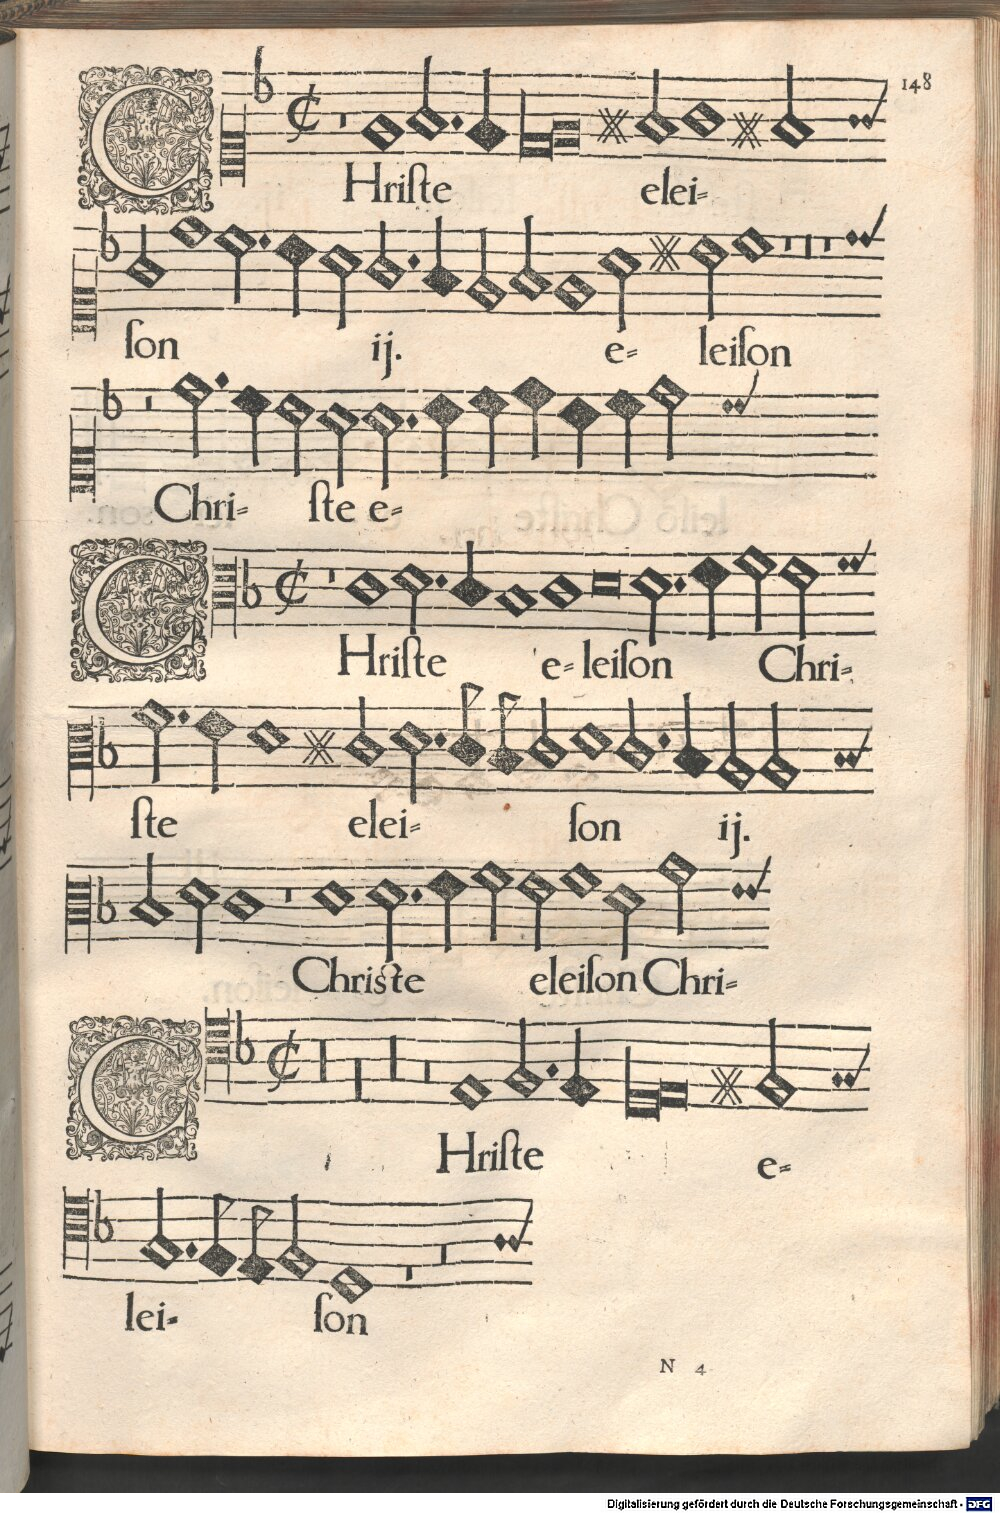 148
CHriſte elei=
ſon ij. e= leiſon
Chri= ſte e=
CHriſte e= leiſon Chri=
ſte elei= ſon ij.
Chriſte eleiſon Chri=
CHriſte e=
lei= ſon
N 4
Digitalisierung gefördert durch die Deutsche Forschungsgemeinschaft - DFG